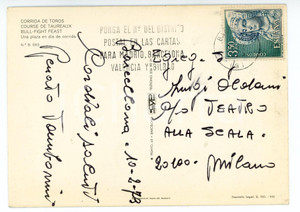 CORRIDA DE TOROS
COURSE DE TAUREAUX
BULL-FIGHT FEAST
Una plaza en día de corrida
PONGA EL Nº DEL DISTRITO
POSTAL EN LAS CARTAS
PARA MADRID, BARCELONA
VALENCIA Y BILBAO
Barcellona 10-2-73
Cordiali saluti
Renato Tamborini
Egreg.
Luigi Oldani
c/o TEATRO
ALLA SCALA.
20100 - Milano